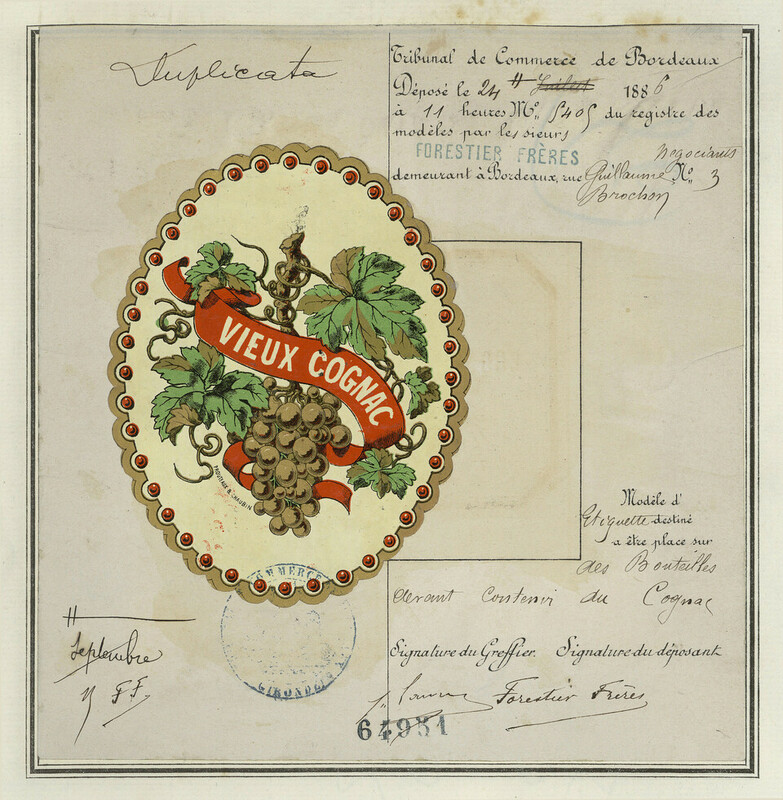 Duplicata
Tribunal de Commerce de Bordeaux
Déposé le 24 # Juillet 1886
à 11 heures Mo. 5405 du registre des
modèles par les sieurs
FORESTIER FRÈRES Negociants
demeurant à Bordeaux, rue Guillaume No. 3
Brochon
VIEUX COGNAC
PROUTEAUX & CHAUBIN
Modèle d'
Etiquette destiné
a être place sur
des Bouteilles
devant contenir du Cognac
COMMERCE
GIRONDE
#
Septembre
F.F.
Signature du Greffier. Signature du déposant
Forestier Frères
64951